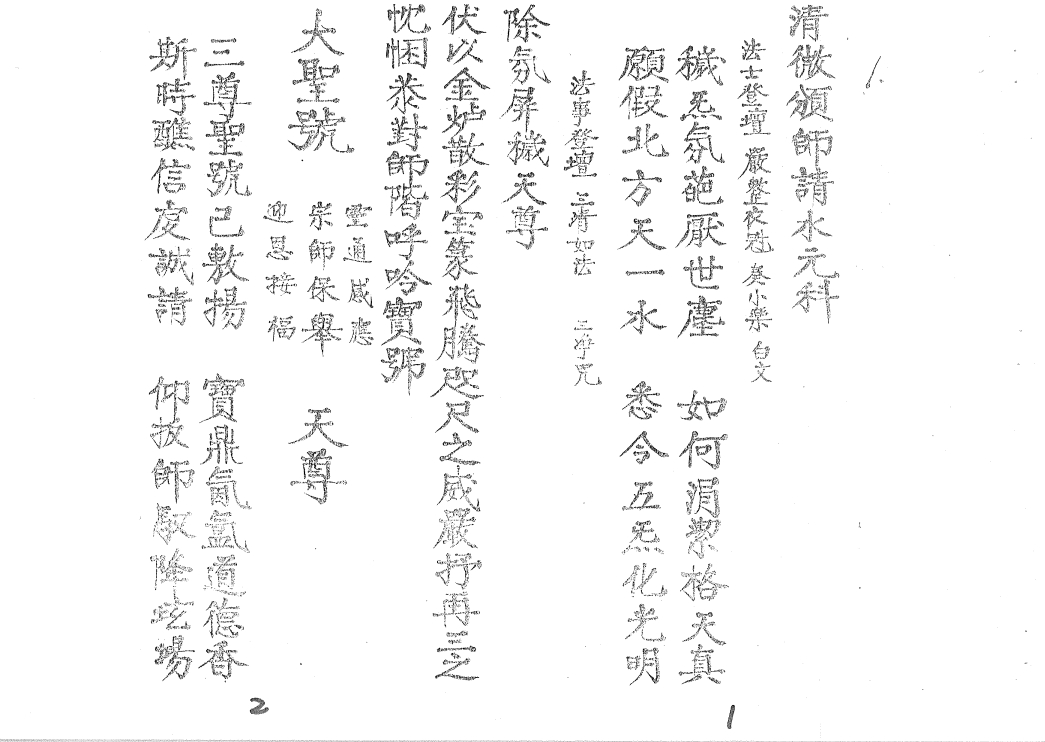 清微頒師請水元科
法士登壇 嚴整夜ø 奏小樂 白文
穢炁氛葩厭世塵 如何涓潔格天真
願假北方天一水 悉令五炁化光明
法事登壇 三淸如法 三淨咒
除氛屏穢天尊
伏以金炉散彩宝篆飛騰咫尺之威嚴抒再三之
忱悃恭對師階呼吟寶號
大聖號 天尊
雷通感應
宗師保舉
迎恩接福
三尊聖號已敷揚 寶鼎氤氳道德香
斯時醮信虔誠請 仰扳師馭降坛場
2
1